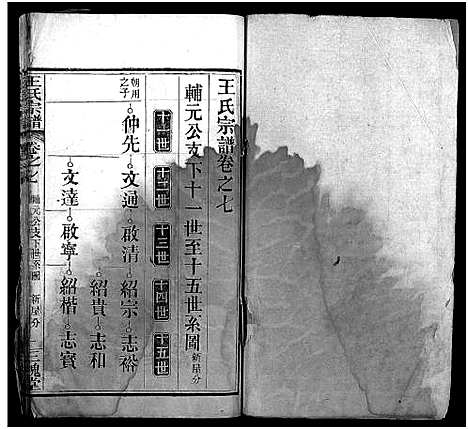 王氏宗譜卷之七
輔元公支下十一世至十五世系圖 新屋分
十一世 十二世 十三世 十四世 十五世
朝用之子 仲先 文通 啟清 紹宗 志裕
紹貴 志和
文達 啟寧 紹楷 志賓
王氏宗譜 卷之七 輔元公支下世系圖 新屋分 三槐堂